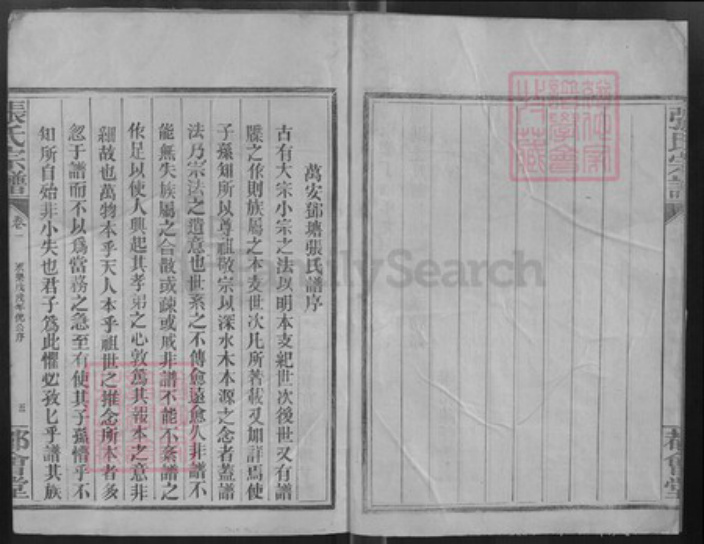 張氏宗譜
都會堂
萬安鄧塘張氏譜序
古有大宗小宗之法以明本支紀世次後世又有譜
牒之作則族屬之本支世次凡所著載又加詳焉使
子孫知所以尊祖敬宗以深水木本源之念者蓋譜
法乃宗法之遺意也世系之不傳愈遠愈久非譜不
能無失族屬之合散或疎或戚非譜不能不紊譜之
作足以使人興起其孝弟之心敦篤其報本之意非
細故也萬物本乎天人本乎祖世之推念所本者多
忽于譜而不以爲當務之急至有使其子孫懵乎不
知所自始非小失也君子爲此懼必孜匕乎譜其族
張氏宗譜
卷一
五
都會堂
FamilySearch